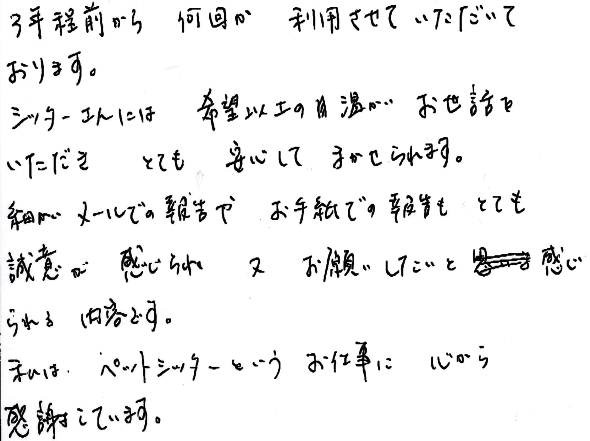 3年程前から 何回か 利用させて いただいて
おります。
シッターさんには 希望以上の 温かい お世話を
いただき とても 安心して まかせられます。
細かい メールでの 報告や お手紙での 報告も とても
誠意が 感じられ 又 お願いしたいと 感じ
られる 内容です。
私は ペットシッターという お仕事に 心から
感謝しています。